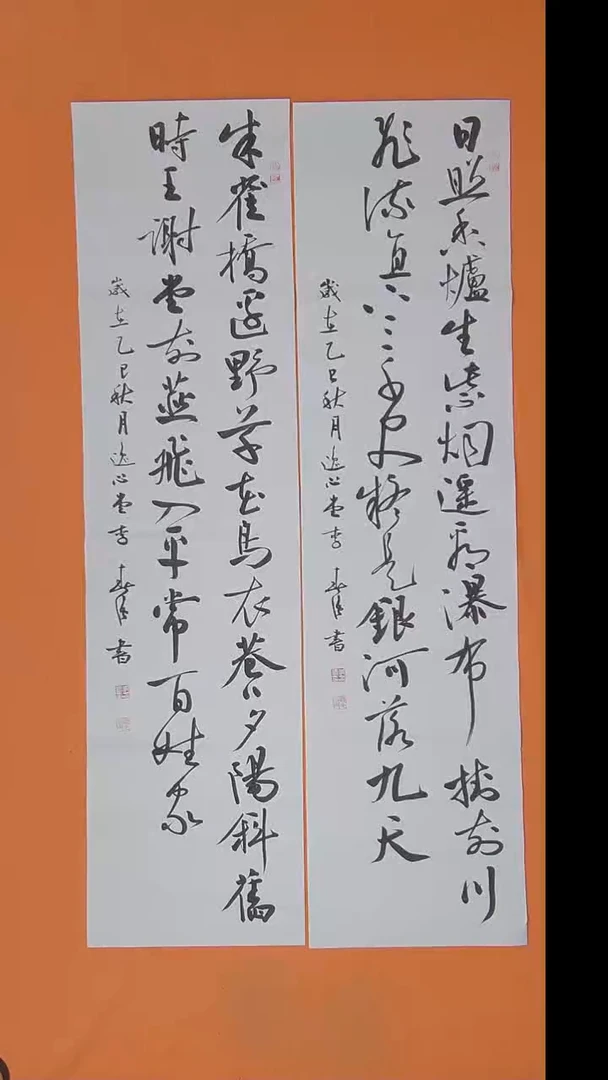 日照香爐生紫烟遥看瀑布掛前川
飛流直下三千尺疑是銀河落九天
歲在乙巳秋月逸心堂李書
朱雀橋邊野草花烏衣巷口夕陽斜舊
時王謝堂前燕飛入平常百姓家
歲在乙巳秋月逸心堂李書